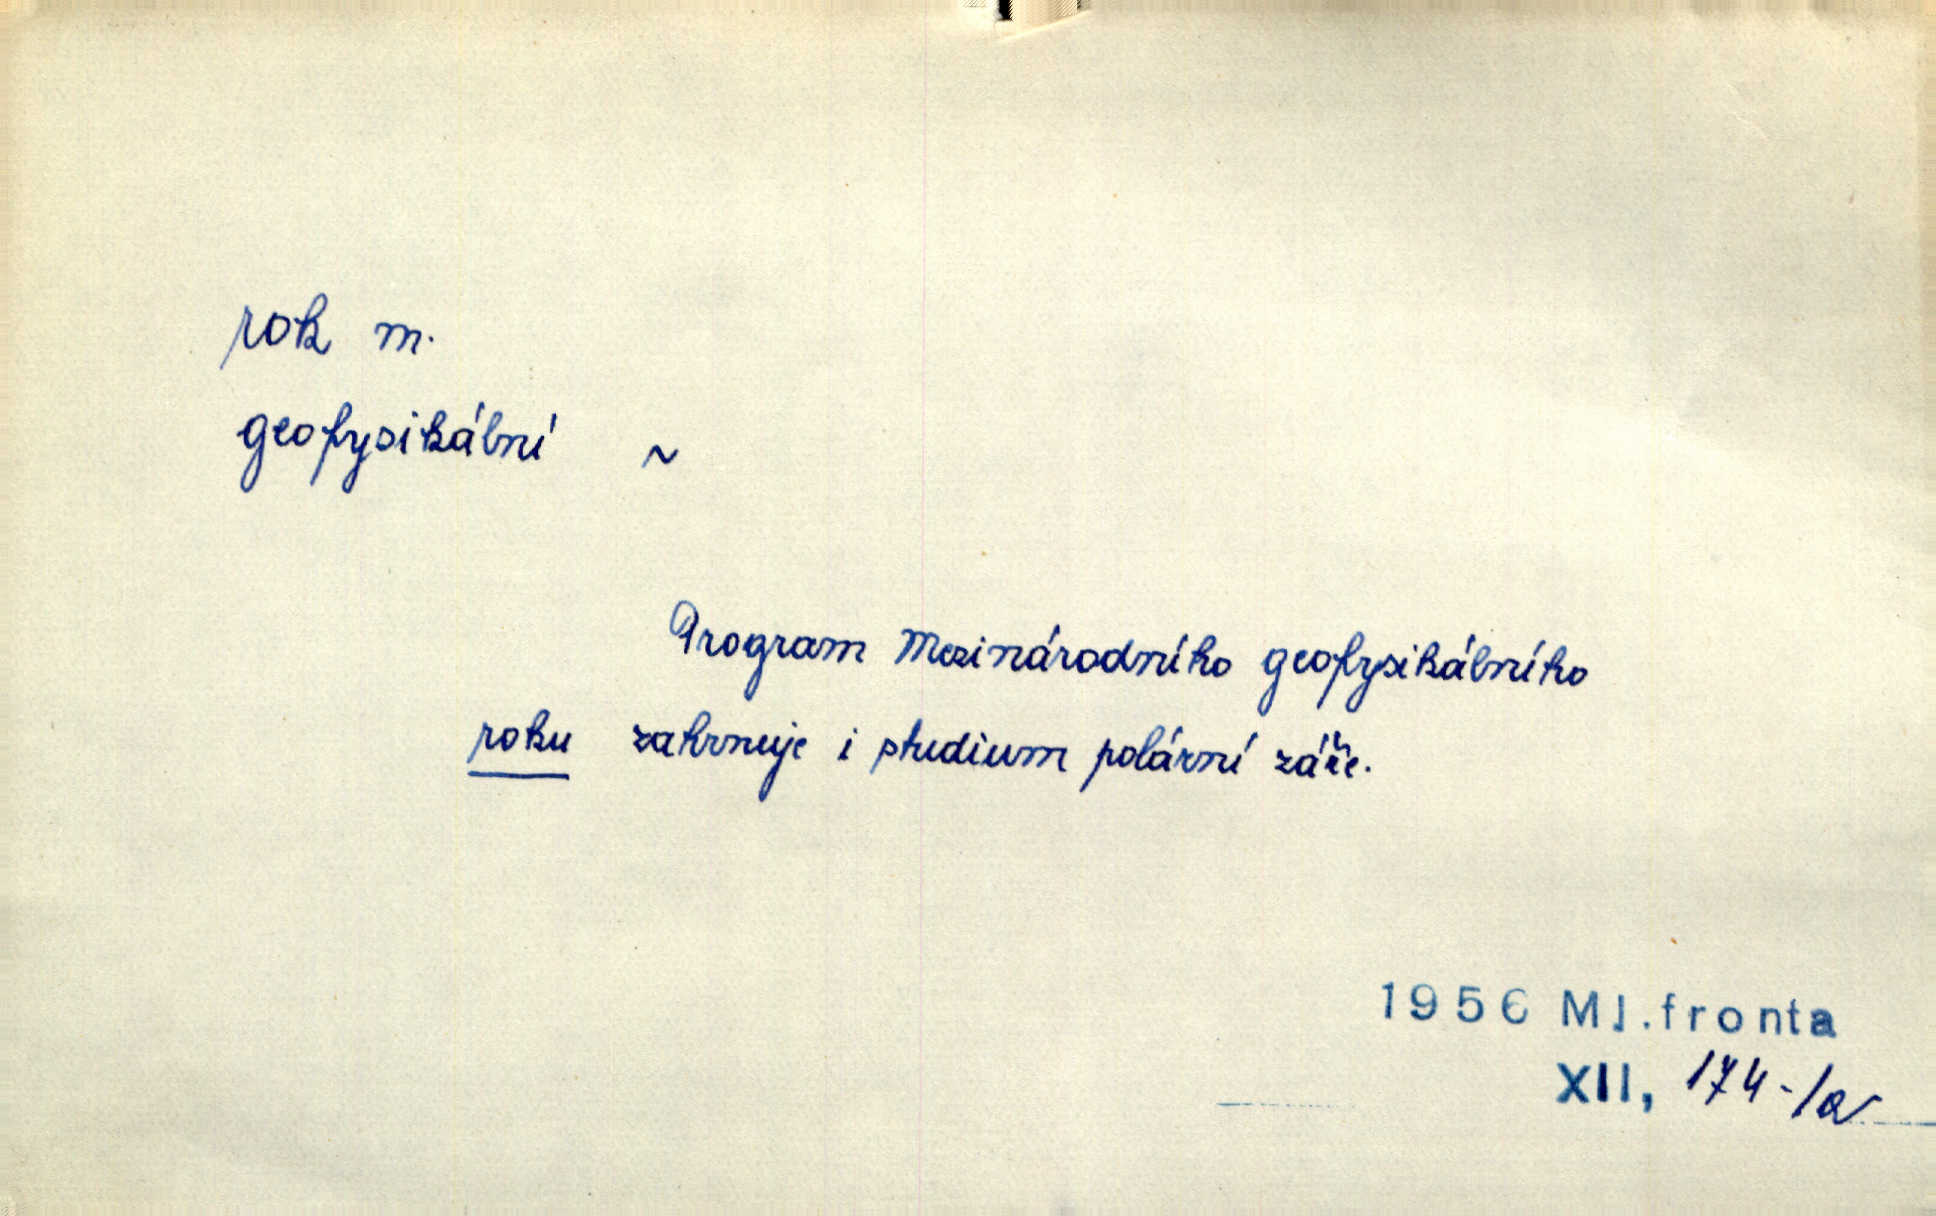 rok m.
geofysikální ~
Program Mezinárodního geofysikálního
roku zahrnuje i studium polární záře.
1956 Ml.fronta
XII, 174-1a